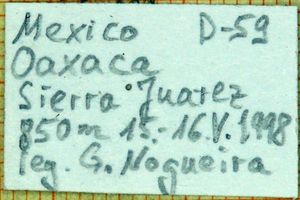 Mexico D-59
Oaxaca
Sierra Juarez
850m 15.-16.V.1998
leg. G. Nogueira